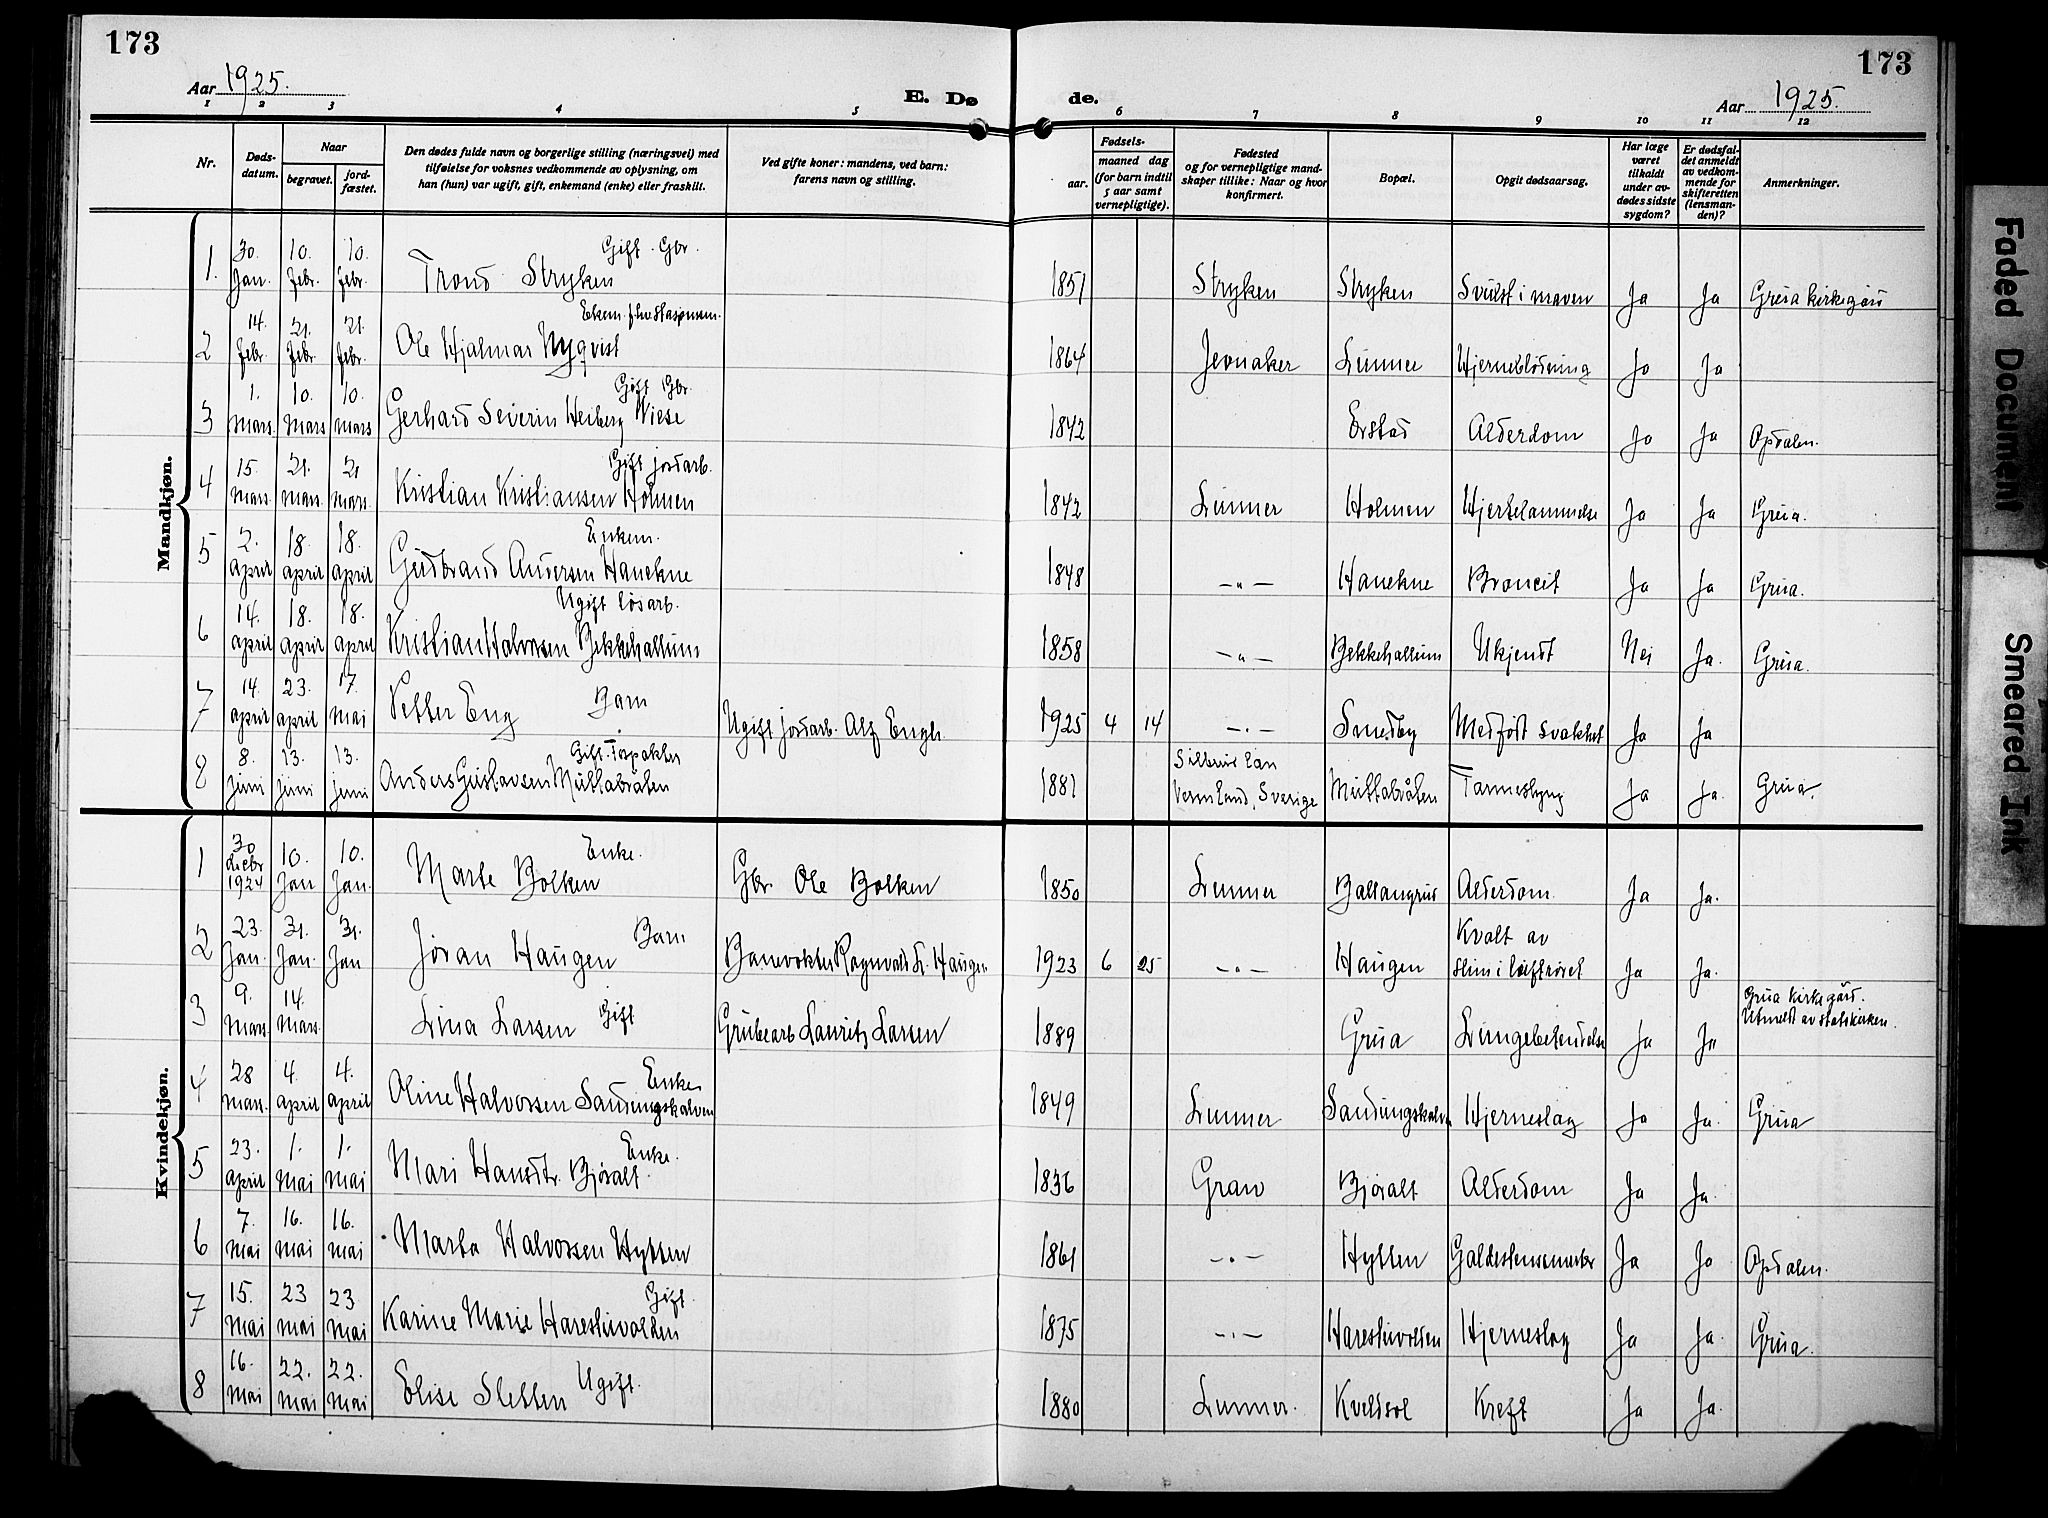 173
Aar 1925.
E. Døde.
173
Aar 1925.
1 2 3 4 5 6 7 8 9 10 11 12
Nr.
Døds-
datum.
Naar
begravet.
jord-
fæstet.
Den dødes fulde navn og borgerlige stilling (næringsvei) med
tilføielse for voksnes vedkommende av oplysning, om
han (hun) var ugift, gift, enkemand (enke) eller fraskilt.
Ved gifte koner: mandens, ved barn:
farens navn og stilling.
Fødsels-
aar.
maaned dag
(for barn indtil
5 aar samt
vernepligtige).
Fødested
og for vernepligtige mand-
skaper tillike: Naar og hvor
konfirmert.
Bopæl.
Opgit dødsaarsag.
Har læge
været
tilkaldt
under av-
dødes sidste
sygdom?
Er dødsfal-
det anmeldt
av vedkom-
mende for
skifteretten
(lensman-
den)?
Anmerkninger.
Mandkjøn.
1. 30. Jan. 10. febr. 10. febr. Gift. Gbr. Trond Stryken 1851 Stryken Stryken Svulst i maven Ja Ja Grua kirkegård
2 14. febr. 21. febr. 21. febr. Ekem. Ole Hjalmar Nyqvist 1864 Jevnaker Lunner Hjerneblødning Ja Ja
3 1. mars. 10. mars 10. mars Gift Gbr. Gerhard Severin Heiberg Wiese 1842 Erstad Alderdom Ja Ja Opdalen.
4 15. mars. 21. mars. 21 mars. Gift jordarb. Kristian Kristiansen Holmen 1842 Lunner Holmen Hjertelammelse Ja Ja Grua.
5 2. april 18. april 18. april Enkem. Gudbrand Andersen Hanekne 1848 —„— Hanekne Broncit Ja Ja Grua.
6 14. april 18. april 18. april Ugift løsarb. Kristian Halvorsen Bekkehallum 1858 —„— Bekkehallum Ukjendt Nei Ja. Grua.
7 14. april 23. april 17. mai Barn Petter Eng Ugift jordarb. Alf Engh 1925 4 14 —„— Smedby Medfødt svakhet Ja Ja
8 8. juni 13. juni 13. juni Gift Anders Gustavsen Muttabråten 1881 Vermland, Sverige Muttabråten Ja Ja. Grua.
Kvindekjøn.
1 30 decbr 1924 10. Jan 10. Jan. Enke. Marte Bolken Gbr. Ole Bolken 1850 Lunner Ballangrud Alderdom. Ja Ja.
2 23. Jan. 31. Jan. 31. Jan Barn Jøran Haugen Banevokter Ragnvald L. Haugen 1923 6 25 —„— Haugen Kvalt av slim i luftrøret Ja Ja.
3 9. mars. 14. mars. Gift Lina Larsen Grubearb Lauritz Larsen 1889 Grua Lungebetendelse Ja Ja Grua kirkegård. Utmeldt av statskirken.
4 28 mars. 4. april 4. april Enke Oline Halvorsen Sandungskalven 1849 Lunner Sandungskalven Hjerneslag Ja Ja. Grua
5 23. april 1. mai 1. mai Enke. Mari Hansdtr. Bjøralt 1836 Gran Bjøralt Alderdom Ja Ja.
6 7. mai 16. mai 16. mai Marta Halvorsen Hytten 1861 —„— Hytten Ja Ja Opdalen.
7 15. mai 23 mai 23 mai Gift. Karine Marie Harestuvolden 1875 —„— Harestuvolden Hjerneslag Ja Ja. Grua.
8 16. mai 22. mai 22. mai Ugift. Elise Sletten 1880 Lunner. Kveldsol Kreft Ja Ja.
Faded Document
Smeared Ink